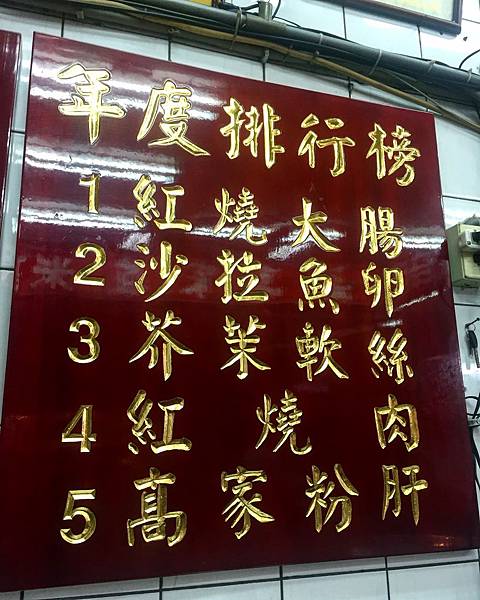 年度排行榜
1 紅燒大腸
2 沙拉魚卵
3 芥茉軟絲
4 紅燒肉
5 高家粉肝